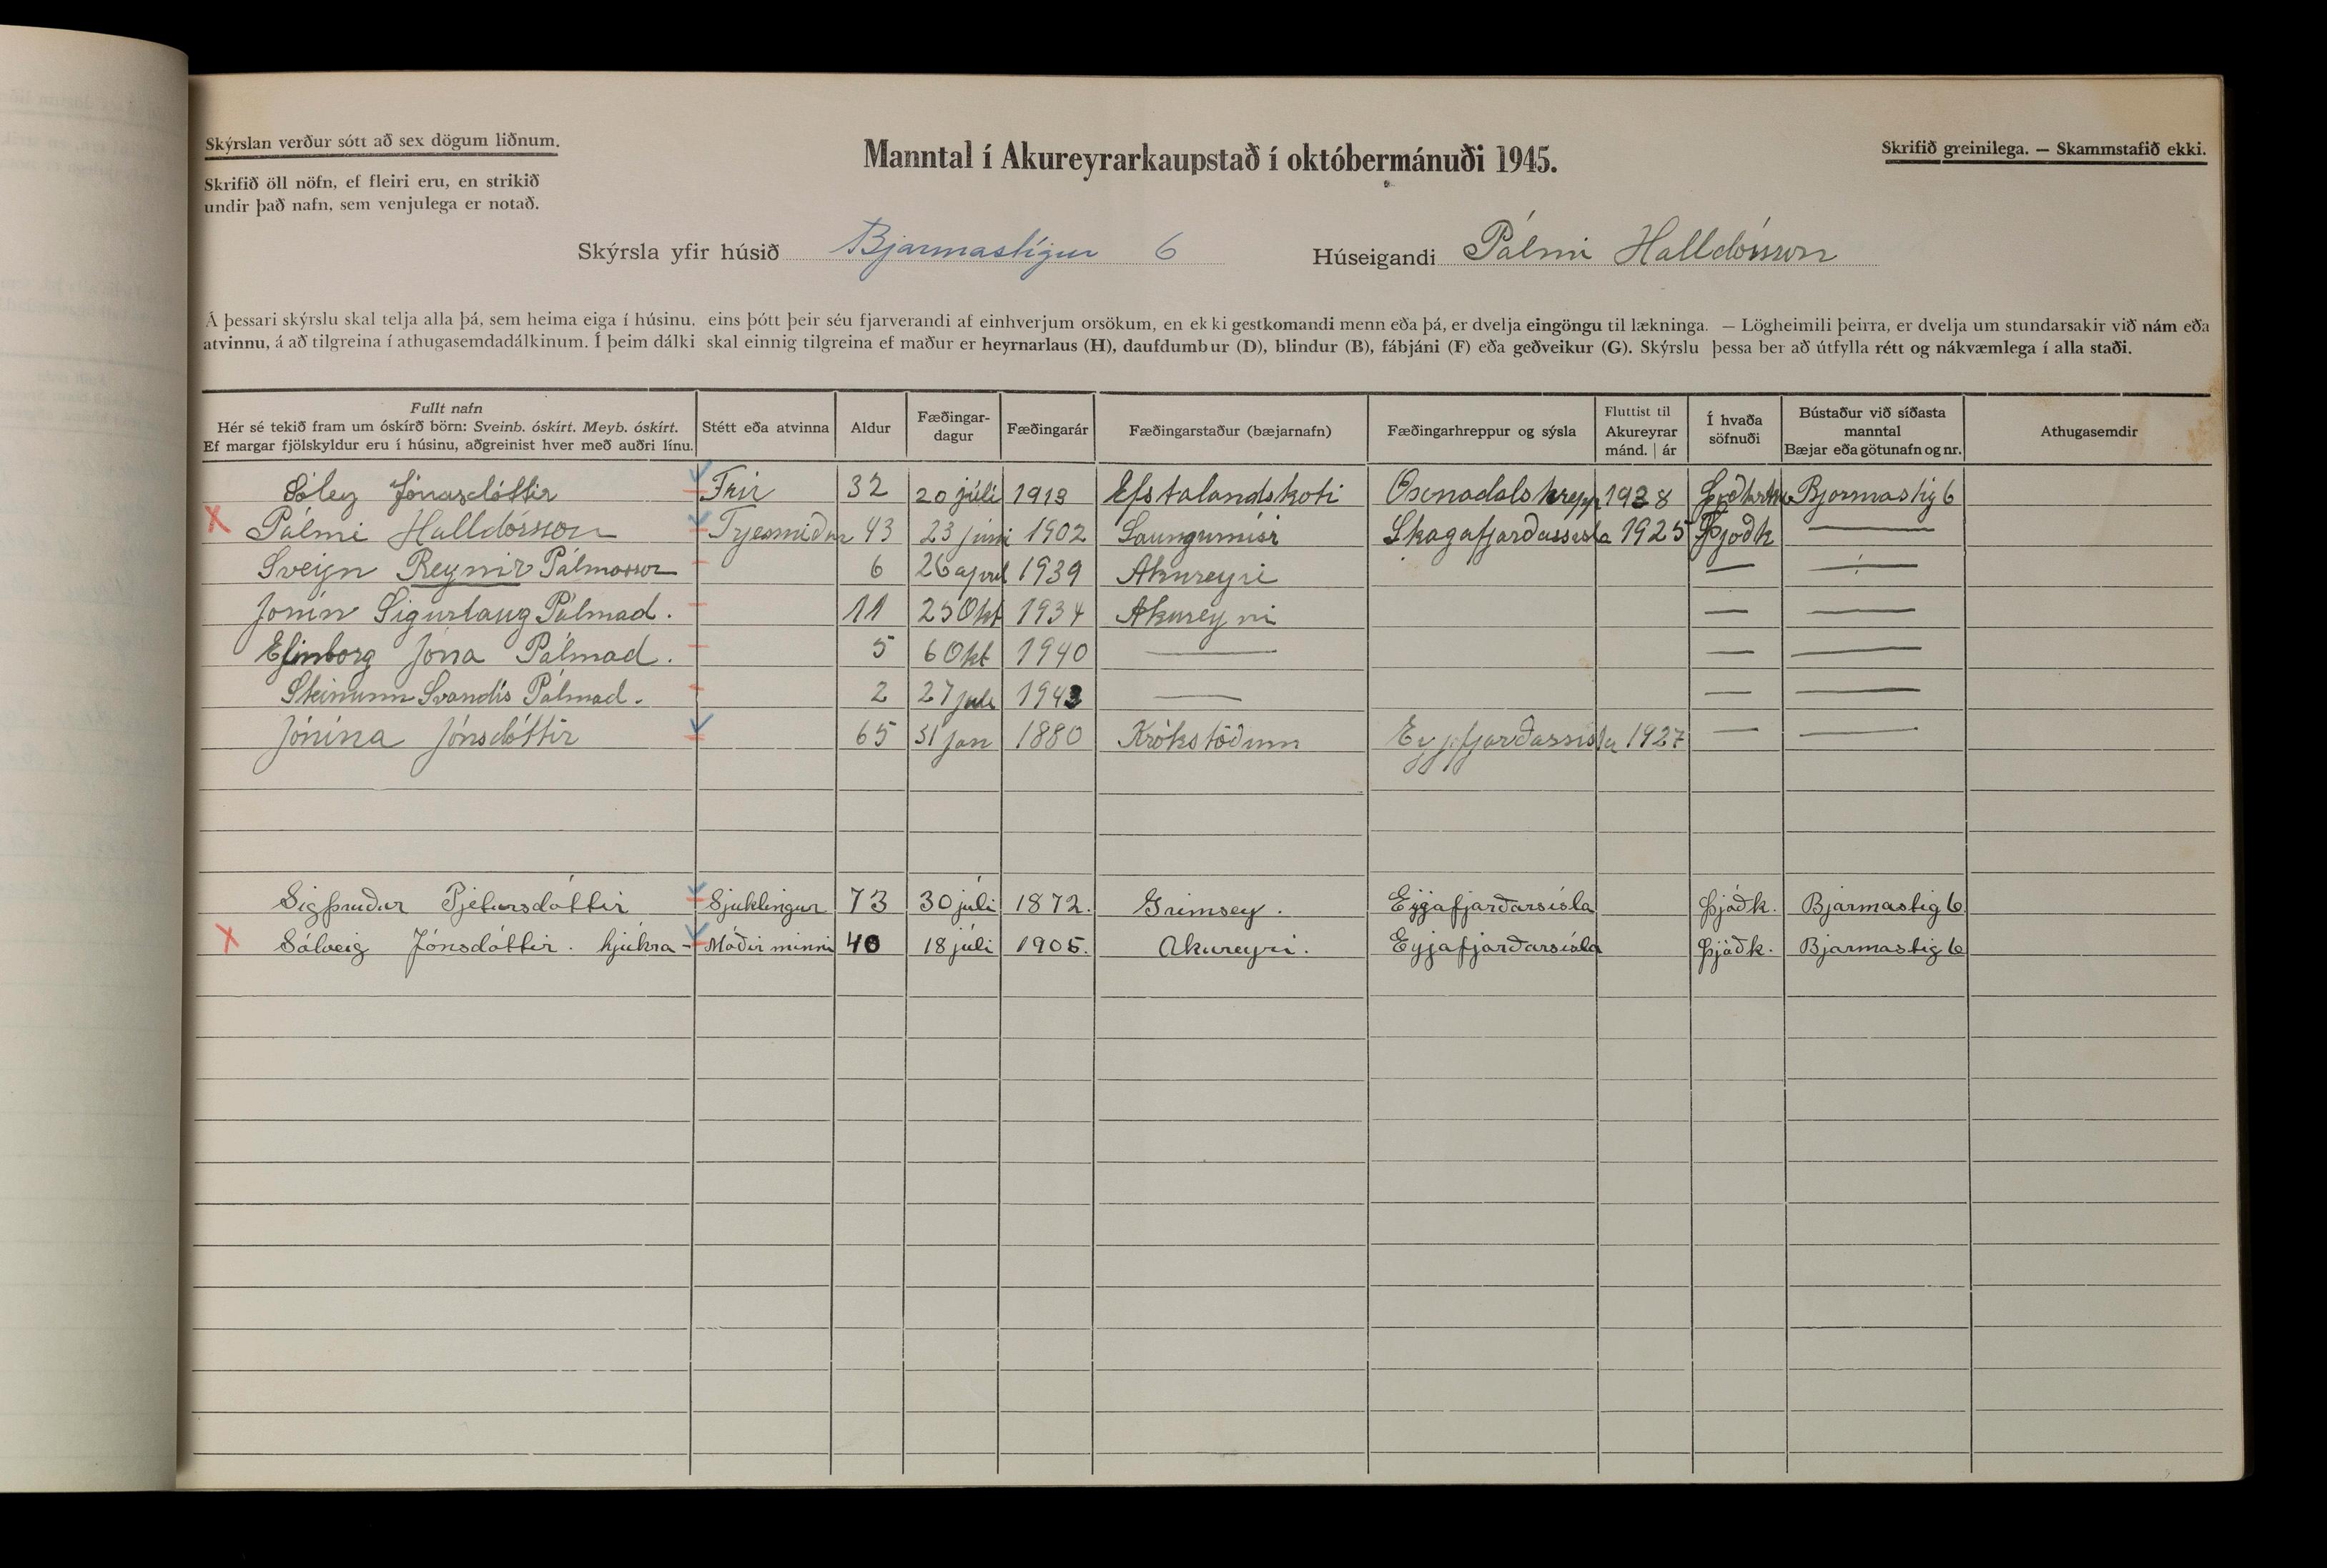 Skýrslan verður sótt að sex dögum liðnum.
Skrifið öll nöfn, ef fleiri eru, en strikið
undir það nafn, sem venjulega er notað.
Manntal í Akureyrarkaupstað í októbermánuði 1945.
Skrifið greinilega. — Skammstafið ekki.
Skýrsla yfir húsið Bjarmastígur 6 Húseigandi Pálmi Halldórsson
Á þessari skýrslu skal telja alla þá, sem heima eiga í húsinu, eins þótt þeir séu fjarverandi af einhverjum orsökum, en ekki gestkomandi menn eða þá, er dvelja eingöngu til lækninga. — Lögheimili þeirra, er dvelja um stundarsakir við nám eða
atvinnu, á að tilgreina í athugasemdadálkinum. Í þeim dálki skal einnig tilgreina ef maður er heyrnarlaus (H), daufdumbur (D), blindur (B), fábjáni (F) eða geðveikur (G). Skýrslu þessa ber að útfylla rétt og nákvæmlega í alla staði.
Fullt nafn
Hér sé tekið fram um óskírð börn: Sveinb. óskírt. Meyb. óskírt.
Ef margar fjölskyldur eru í húsinu, aðgreinist hver með auðri línu.
Stétt eða atvinna
Aldur
Fæðingar-
dagur
Fæðingarár
Fæðingarstaður (bæjarnafn)
Fæðingarhreppur og sýsla
Fluttist til
Akureyrar
mánd. | ár
Í hvaða
söfnuði
Bústaður við síðasta
manntal
Bæjar eða götunafn og nr.
Athugasemdir
Sóley Jónasdóttir Frú 32 20 júlí 1913 Efstalandskoti Öxnadalshrepp 1938 Bjarmastig 6
X Pálmi Halldórsson Trjesmiður 43 23 júni 1902 Skagafjarðassísla 1925 Þjoðk —
Sveinn Reynir Pálmasson 6 26 apríl 1939 Akureyri — —
Jonin Sigurlaug Pálmad. 11 25 Okt 1934 Akureyri — —
Elinborg Jóna Pálmad. 5 6 Okt 1940 — — —
Steinunn Svandís Pálmad. 2 27 júli 1943 — — —
Jónína Jónsdóttir 65 31 jan 1880 Krókstöðum Eyjafjarðassísla 1927 — —
Sigþruður Pjetursdóttir Sjuklingur 73 30 júlí 1872. Grimsey. Eyjafjarðarsísla Þjóðk. Bjarmastig 6
X Sólveig Jónsdóttir. hjúkra- Móðir minni 40 18 júlí 1905. Akureyri. Eyjafjarðarsísla Þjóðk. Bjarmastig 6